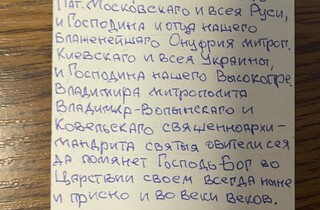 Пат. Московскаго и всея Руси,
и Господина и отца нашего
Блаженнейшаго Онуфрия митроп.
Киевскаго и всея Украины,
и Господина нашего Высокопре.
Владимира митрополита
Владимир-Волынскаго и
Ковельскаго священноархи-
мандрита святыя обители сея
да помянет Господь Бог во
Царствии своем всегда ныне
и присно и во веки веков.